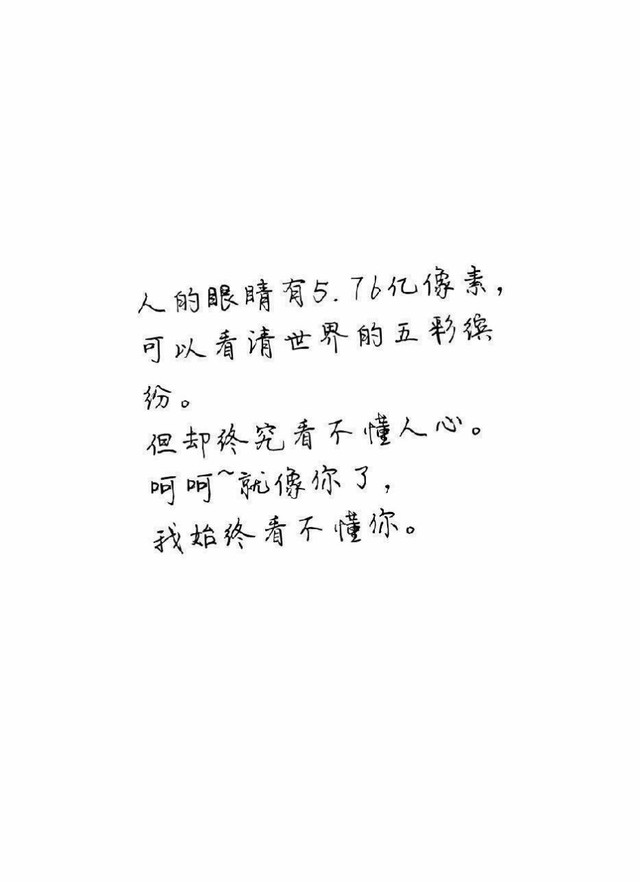 人的眼睛有5.76亿像素，
可以看清世界的五彩缤
纷。
但却终究看不懂人心。
呵呵~就像你了，
我始终看不懂你。